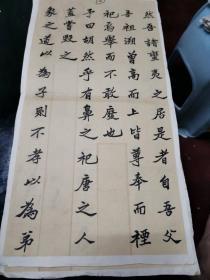 然吾諸蠻夷之居是者自吾父
吾祖溯曾高而上皆尊奉而禋
祀焉舉而不敢廢也
予曰胡然乎有鼻之祀唐之人
蓋嘗毀之
象之道以為子則不孝以為弟